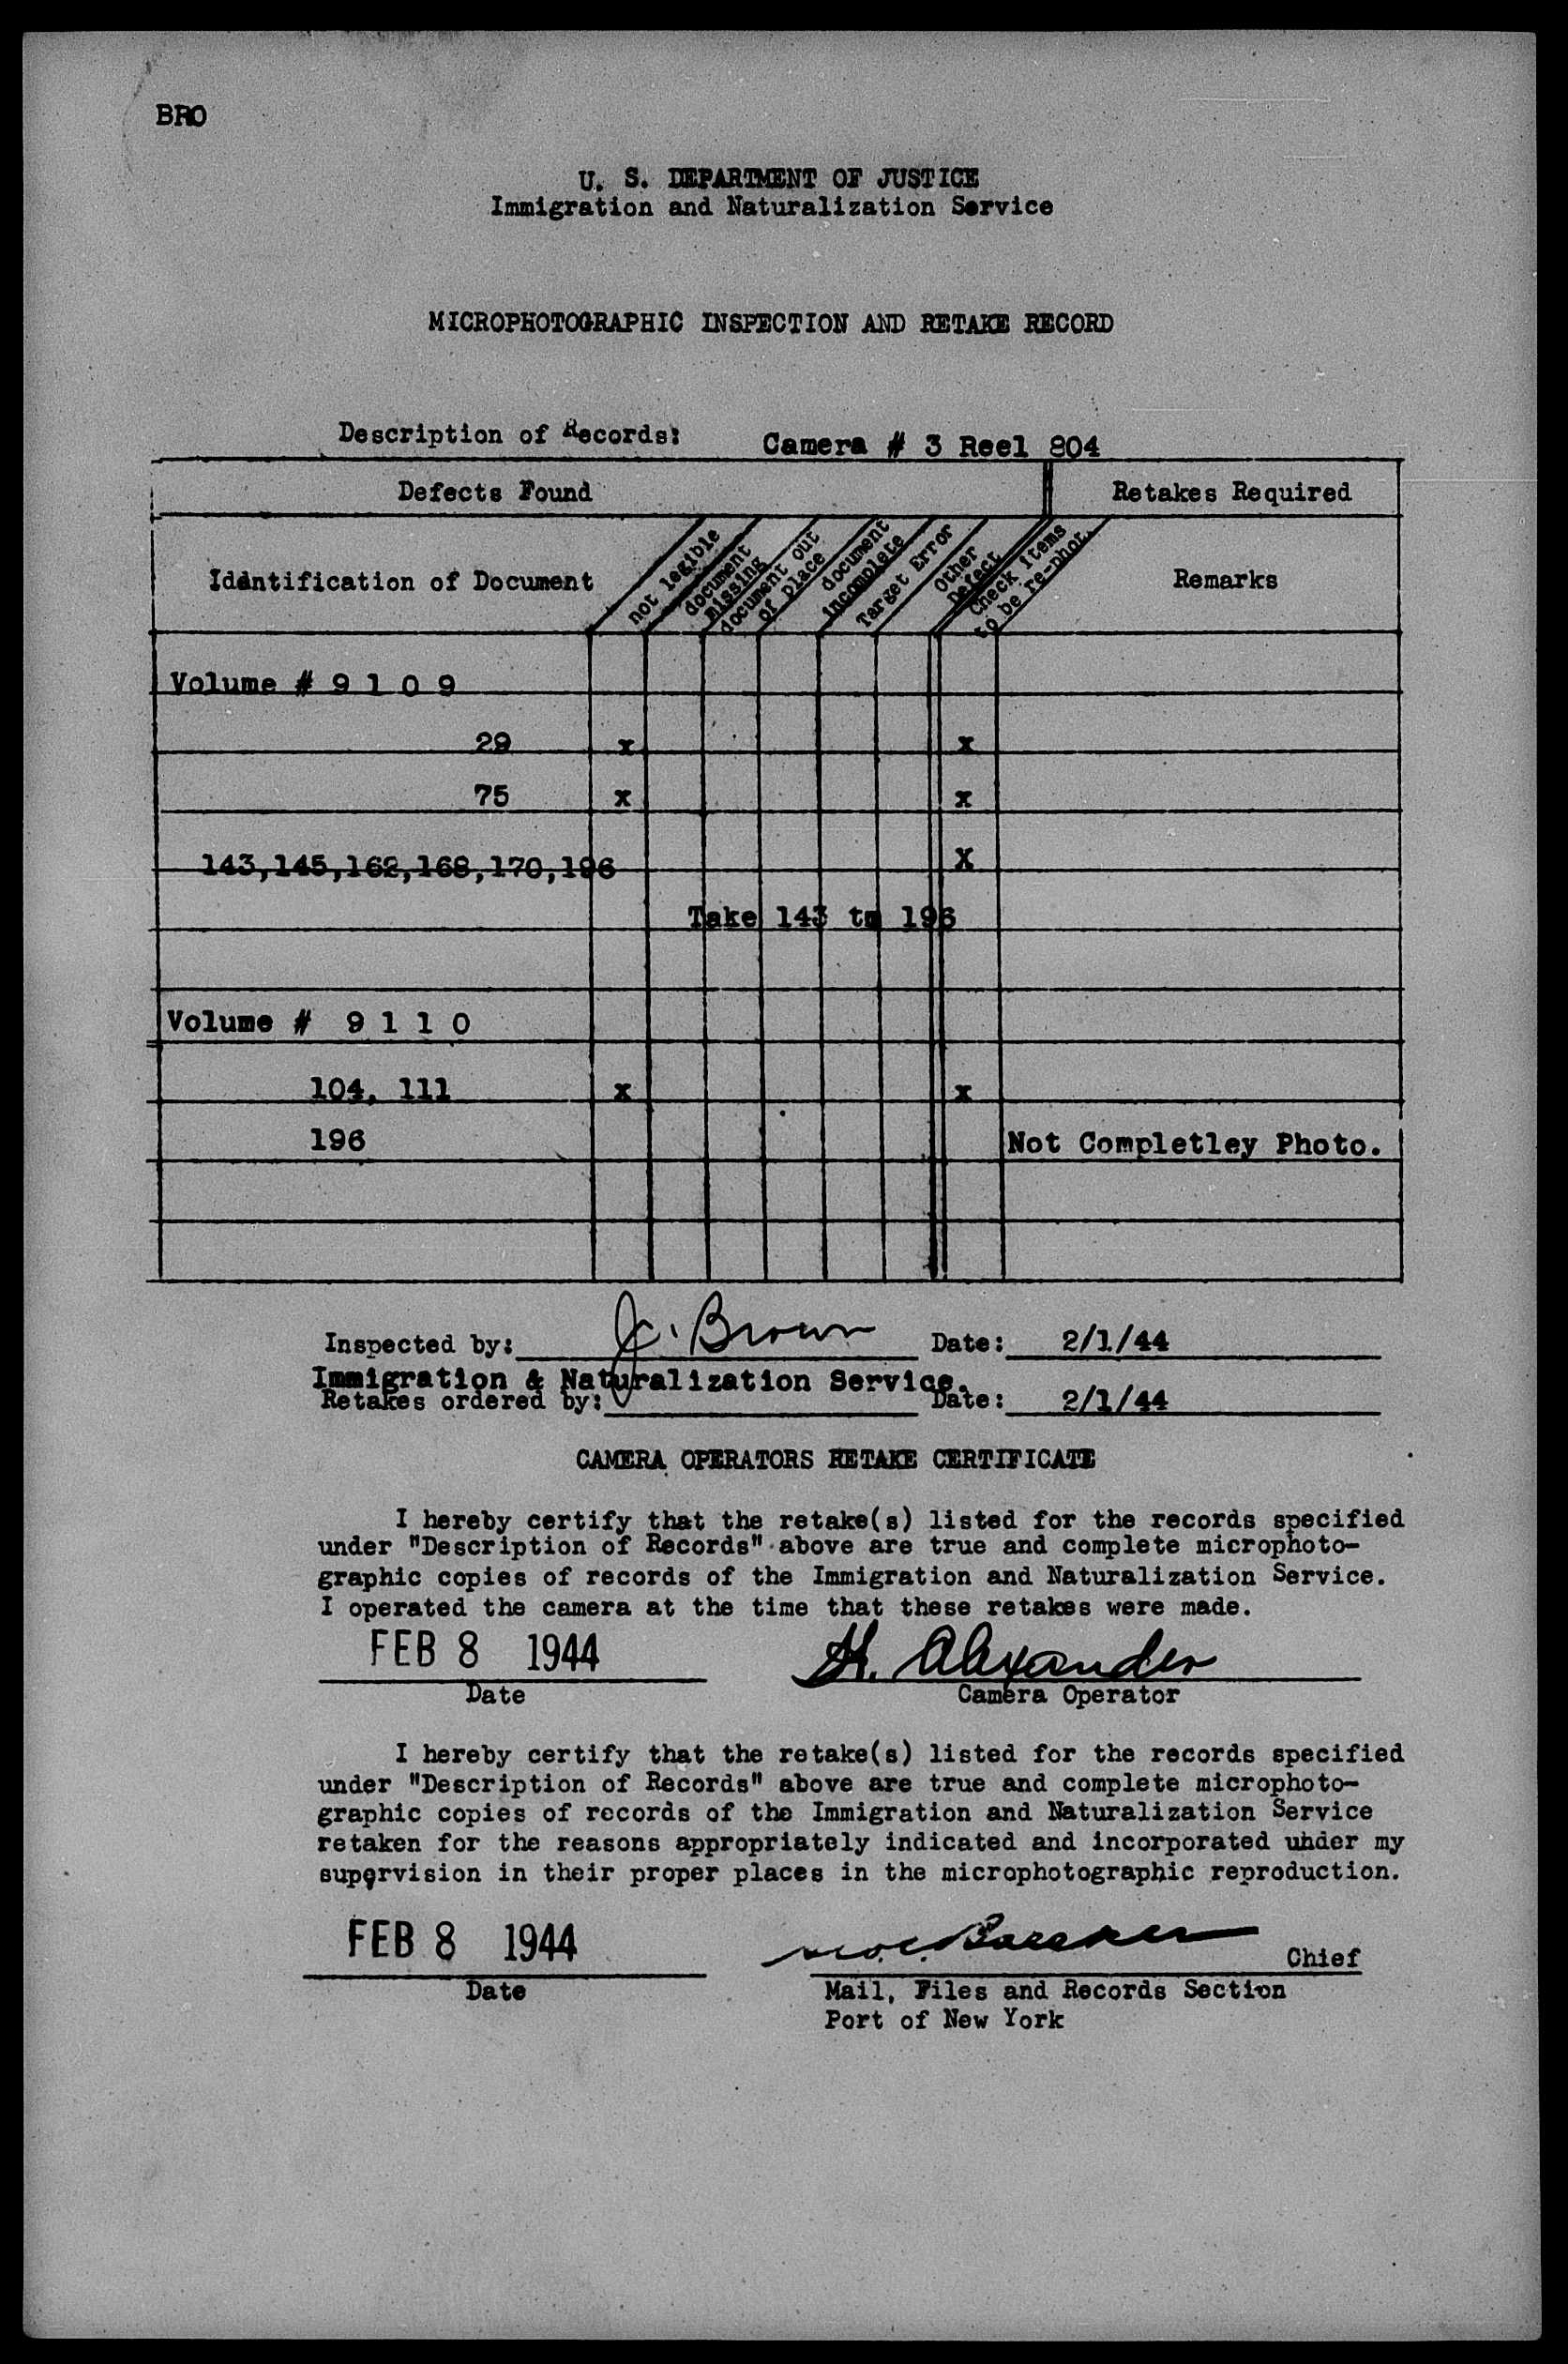 BRO
U. S. DEPARTMENT OF JUSTICE
Immigration and Naturalization Service
MICROPHOTOGRAPHIC INSPECTION AND RETAKE RECORD
Description of Records: Camera # 3 Reel 804
Defects Found Retakes Required
Idantification of Document not legible document missing document out of place document incomplete Target Error Other Defect Check items to be re-phot. Remarks
Volume # 9 1 0 9
29 x x
75 x x
143,145,162,168,170,196 X
Take 143 to 196
Volume # 9 1 1 0
104, 111 x x
196 Not Completley Photo.
Inspected by: J. Brown Date: 2/1/44
Immigration & Naturalization Service.
Retakes ordered by: Date: 2/1/44
CAMERA OPERATORS RETAKE CERTIFICATE
I hereby certify that the retake(s) listed for the records specified
under "Description of Records" above are true and complete microphoto-
graphic copies of records of the Immigration and Naturalization Service.
I operated the camera at the time that these retakes were made.
FEB 8 1944 H. Alexander
Date Camera Operator
I hereby certify that the retake(s) listed for the records specified
under "Description of Records" above are true and complete microphoto-
graphic copies of records of the Immigration and Naturalization Service
retaken for the reasons appropriately indicated and incorporated under my
supervision in their proper places in the microphotographic reproduction.
FEB 8 1944 Chief
Date Mail, Files and Records Section
Port of New York